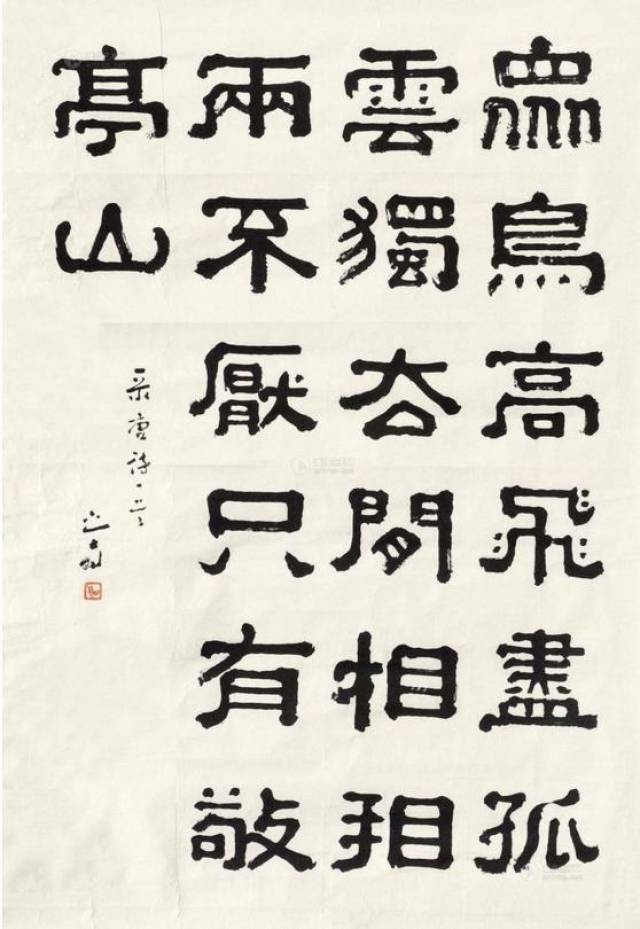 眾鳥高飛盡孤
雲獨去閒相看
兩不厭只有敬
亭山
唐詩一首